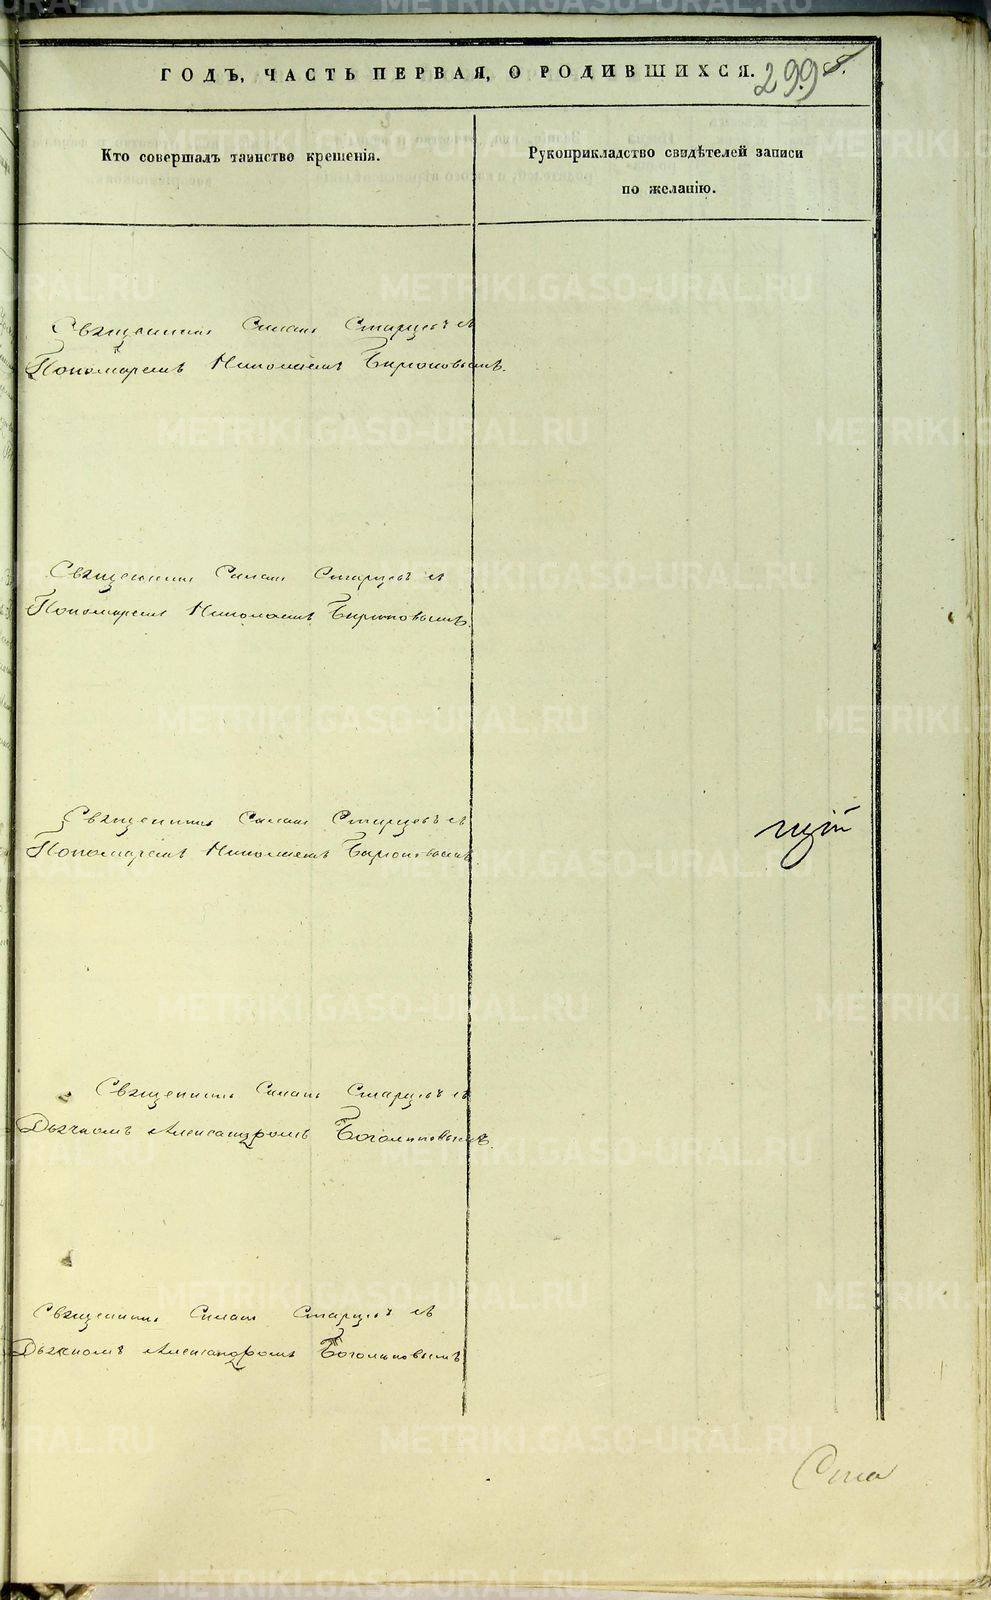 ГОДЪ, ЧАСТЬ ПЕРВАЯ, О РОДИВШИХСЯ. 299
Кто совершалъ таинство крещенія.
Рукоприкладство свидѣтелей записи
по желанію.
Священникъ Симеонъ Старцевъ съ
Пономаремъ Николаемъ Бирюковымъ.
Священникъ Симеонъ Старцевъ съ
Пономаремъ Николаемъ Бирюковымъ.
Священникъ Симеонъ Старцевъ съ
Пономаремъ Николаемъ Бирюковымъ.
Священникъ Симеонъ Старцевъ съ
Дьячкомъ Александромъ Боголюповымъ.
Священникъ Симеонъ Старцевъ съ
Дьячкомъ Александромъ Боголюповымъ
METRIKI.GASO-URAL.RU